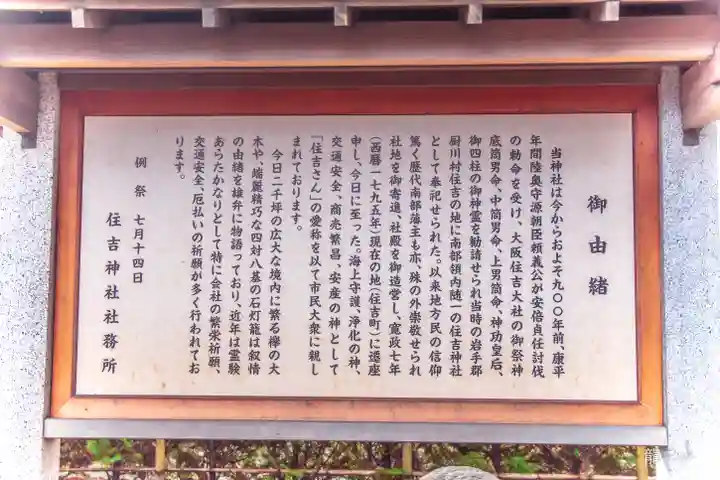 御由緒
当神社は今からおよそ九〇〇年前、康平
年間陸奥守源朝臣頼義公が安倍貞任討伐
の勅命を受け、大阪住吉大社の御祭神
底筒男命、中筒男命、上男筒命、神功皇后、
御四柱の御神霊を勧請せられ当時の岩手郡
厨川村住吉の地に南部領内随一の住吉神社
として奉祀せられた。以来地方民の信仰
篤く歴代南部藩主も亦、殊の外崇敬せられ
社地を御寄進、社殿を御造営し、寛政七年
(西暦一七九五年)現在の地(住吉町)に遷座
申し、今日に至った。海上守護、浄化の神、
交通安全、商売繁昌、安産の神として
「住吉さん」の愛称を以て市民大衆に親し
まれております。
今日二千坪の広大な境内に繁る欅の大
木や、端麗精巧な四対八基の石灯籠は叙情
の由緒を雄弁に物語っており、近年は霊験
あらたかなりとして特に会社の繁栄祈願、
交通安全、厄払いの祈願が多く行われてお
ります。
例祭 七月十四日
住吉神社社務所
龍